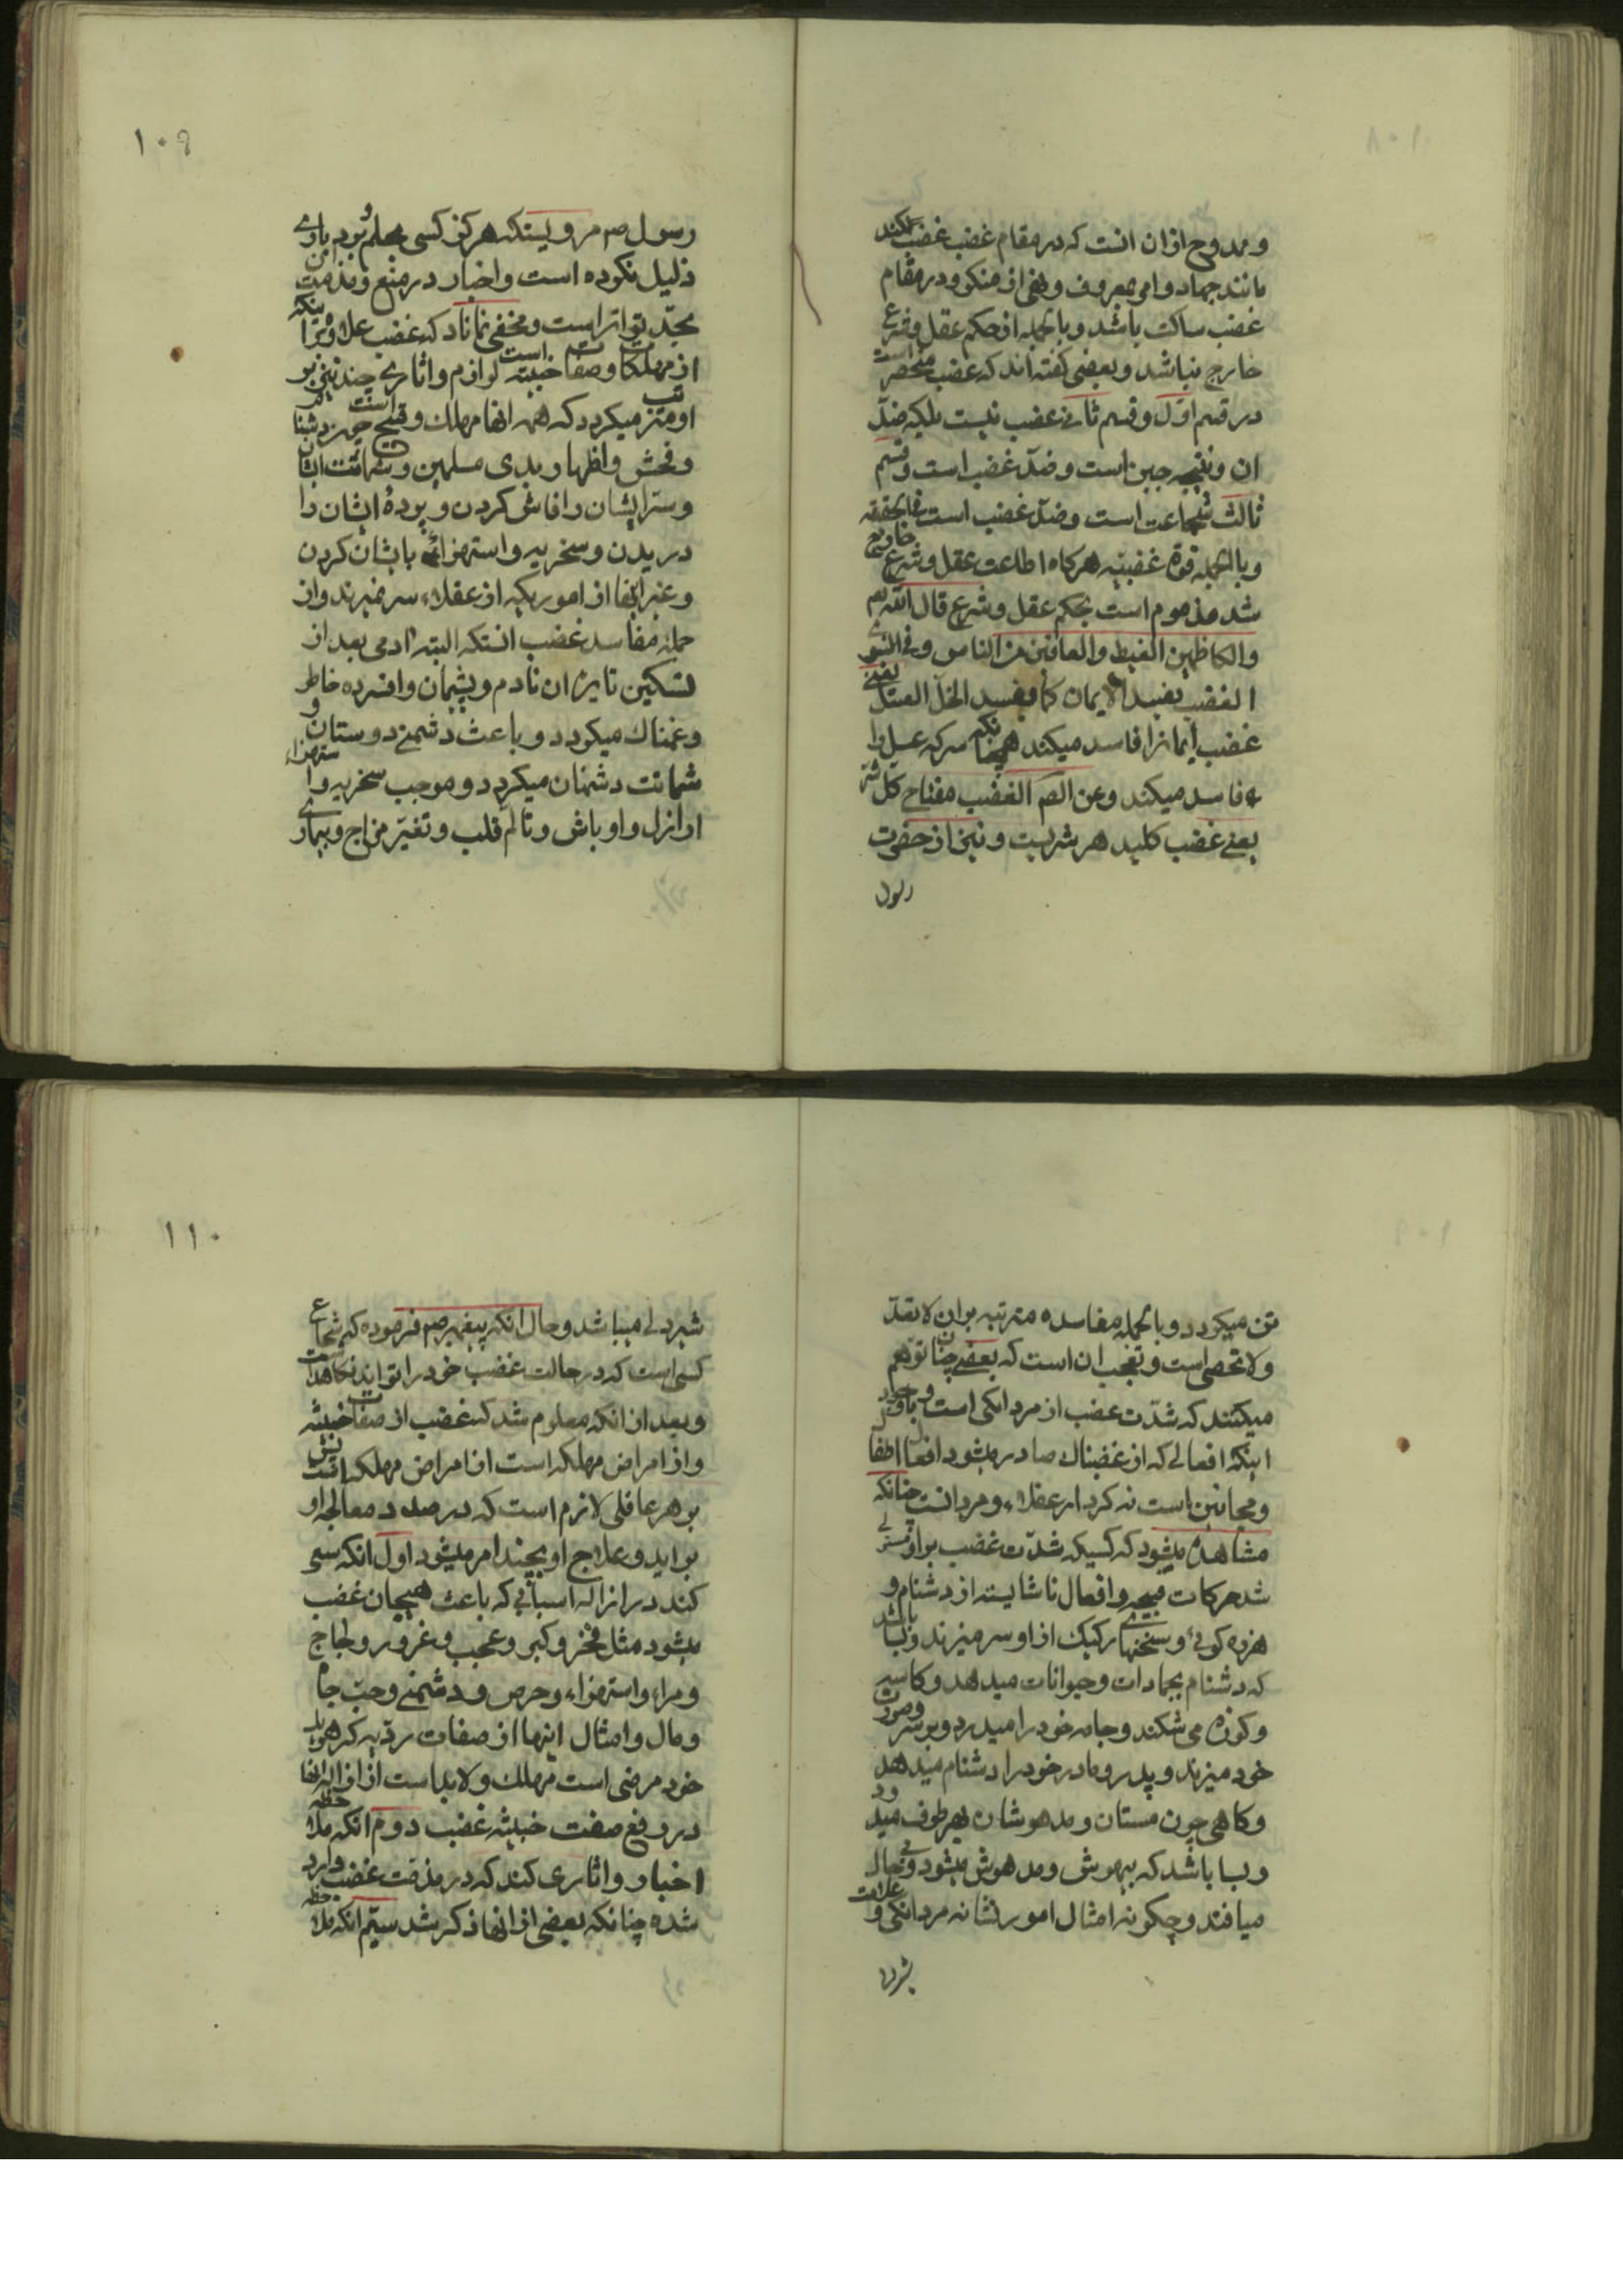 و ممدوح ازان انست که در مقام غضب غضب کند
مانند جهاد و امر بمعروف و نهی از منکر و در مقام
غضب ساکت باشد و بالجمله از حکم عقل و شرع
خارج نباشد و بعضی گفته‌اند که غضب منحصر است
در قسم اوّل و قسم ثانی غضب نیست بلکه ضدّ
ان و نتیجه جبن است و ضدّ غضب است و قسم
ثالث شجاعت است و ضدّ غضب است فی الحقیقه
و بالجمله قوّة غضبیّه هرکاه از اطاعت عقل و شرع خارج
شد مذموم است بحکم عقل و شرع قال الله تم
والکاظمین الغیظ والعافین من الناس و فی النبوی
الغضب یفسد الایمان کما یفسد الخل العسل یعنی
غضب ایمانرا فاسد میکند همچنانکه سرکه عسل را
فاسد میکند و عن الصم الغضب مفتاح کل شر
یعنی غضب کلید هر شریست و نیز از حضرت
رسول
۱۰۹
رسول صم مرویستکه هرکز کسی بحلم
ذلیل نکرده است و اخبار در منع و مذمت
بحدّ تواتر است و مخفی نماناد که غضب علاوه بر اینکه
از مهلکات و صفات خبیثه است لوازم و اثاری چند نیز بر
او مترتب میکردد که همه انها مهلک و قبیح است چون دشنام
و فحش و اظهار بدی مسلمین و شماتت ایشان
و سرّ ایشان را فاش کردن و پردهٔ ایشان را
دریدن و سخریه و استهزاء بایشان کردن
و غیر اینها از اموریکه از عقلاء سر نمیزند و از
جمله مفاسد غضب انستکه البته ادمی بعد از
تسکین نایرهٔ ان نادم و پشیمان و افسرده خاطر
و غمناک میکردد و باعث دشمنی دوستان و
شماتت دشمنان میکردد و موجب سخریه و استهزاء
اراذل و اوباش و تالم قلب و تغیّر مزاج و بیماری
تن میکردد و بالجمله مفاسده مترتبه بران لاتعدّ
ولاتحصی است و تعجب ان است که بعضی چنان توهم
میکنند که شدّت غضب از مردانکی است و با وجود
اینکه افعالی که از غضبناک صادر میشود افعال اطفال
و مجانین است نه کردار عقلاء و مردانست چنانکه
مشاهده میشود که کسیکه شدّت غضب بر او مستولی
شد حرکات قبیحه و افعال ناشایسته از دشنام و
هرزه کوئی و سخنهای رکیک از او سر میزند و بسا باشد
که دشنام بجمادات و حیوانات میدهد و کاسه
و کوزه می شکند و جامه خود را میدرد و بر سر و صورت
خود میزند و پدر و مادر خود را دشنام میدهد
و کاهی چون مستان و مدهوشان بهر طرف میدود
و بسا باشد که بیهوش و مدهوش میشود و بحال
میافتد و چکونه امثال امور نشانه مردانکی و علامت
شیردلی
۱۱۰
شیردلی میباشد و حال انکه پیغمبر صم فرموده که شجاع
کسی است که در حالت غضب خود را تواند نکاهداشت
و بعد از انکه معلوم شد که غضب از صفات خبیثه
و از امراض مهلکه است
بر هر عاقلی لازم است که در صدد معالجه او
براید و علاج او بچند امر میشود اول انکه سعی
کند در ازاله اسبابی که باعث هیجان غضب
میشود مثل فخر و کبر و عجب و غرور و لجاج
و مراء و استهزاء و حرص و دشمنی و حبّ جاه
و مال و امثال اینها از صفات ردّیه که هر یک
خود مرضی است مهلک و لابد است از ازاله انها
در رفع صفت خبیثه غضب دوم انکه ملاحظه
اخبار و اثاری کند که در مذمّت غضب وارد
شده چنانکه بعضی از انها ذکر شد سیّم انکه ملاحظه